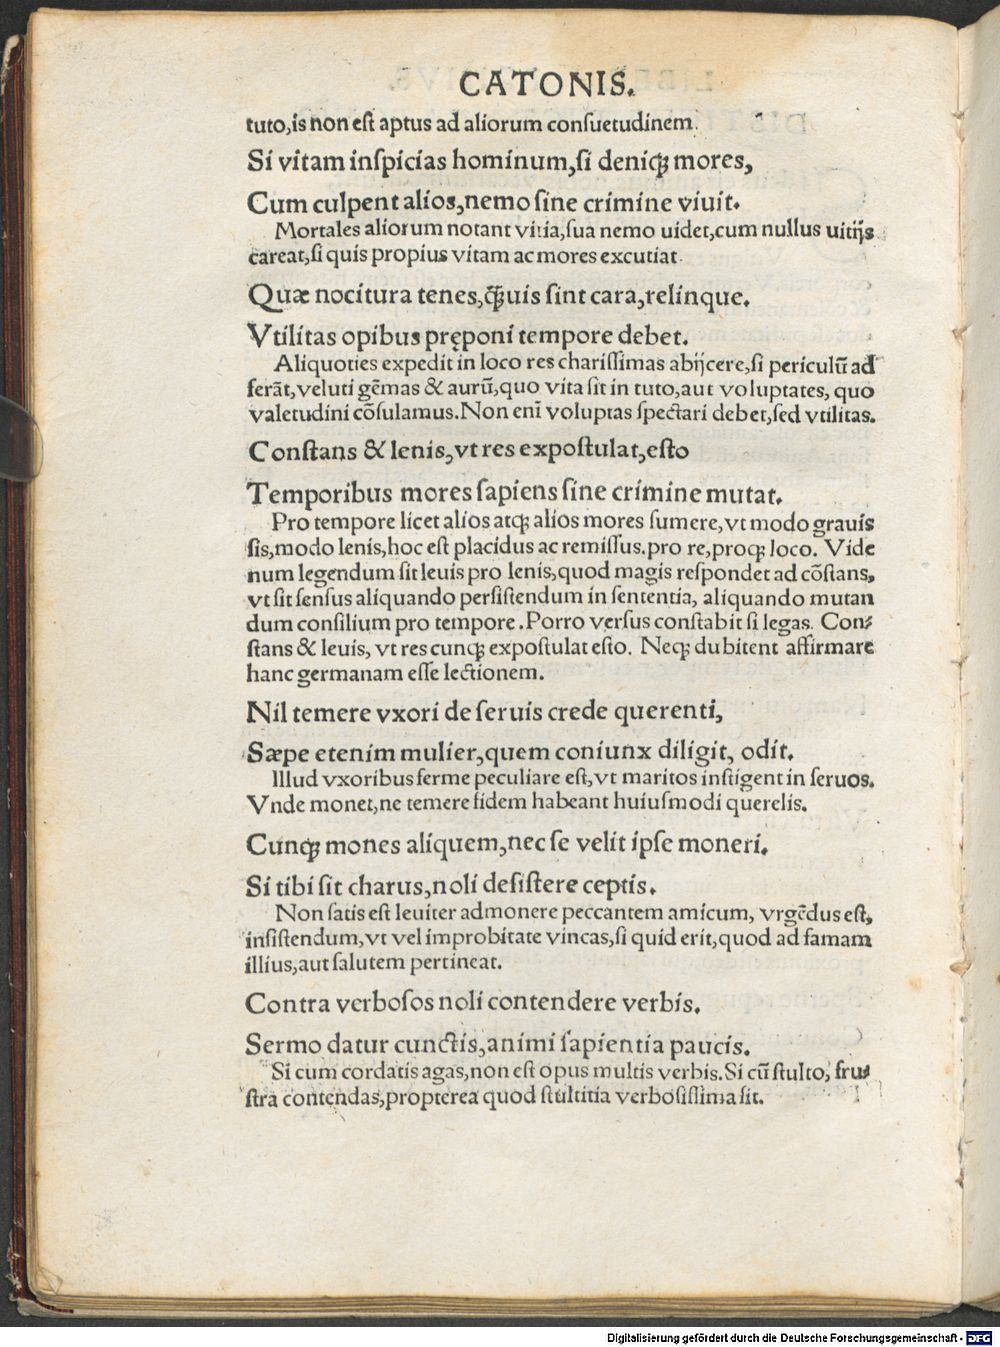 CATONIS.
tuto,is non eſt aptus ad aliorum conſuetudinem.
Si vitam inſpicias hominum,ſi deniqꝫ mores,
Cum culpent alios,nemo ſine crimine viuit.
Mortales aliorum notant vitia,ſua nemo uidet,cum nullus uitijs
careat,ſi quis propius vitam ac mores excutiat.
Quæ nocitura tenes,q̃uis ſint cara,relinque.
Vtilitas opibus pręponi tempore debet.
Aliquoties expedit in loco res chariſſimas abijcere,ſi periculũ ad
ferãt,veluti gẽmas & aurũ,quo vita ſit in tuto,aut voluptates, quo
valetudini cõſulamus.Non enĩ voluptas ſpectari debet,ſed vtilitas.
Conſtans & lenis,vt res expoſtulat,eſto
Temporibus mores ſapiens ſine crimine mutat.
Pro tempore licet alios atqꝫ alios mores ſumere,vt modo grauis
ſis,modo lenis,hoc eſt placidus ac remiſſus.pro re,proqꝫ loco. Vide
num legendum ſit leuis pro lenis,quod magis reſpondet ad cõſtans,
vt ſit ſenſus aliquando perſiſtendum in ſententia, aliquando mutan
dum conſilium pro tempore.Porro verſus conſtabit ſi legas. Con⸗
ſtans & leuis, vt res cunqꝫ expoſtulat eſto. Neqꝫ dubitent affirmare
hanc germanam eſſe lectionem.
Nil temere vxori de ſeruis crede querenti,
Sæpe etenim mulier,quem coniunx diligit, odit.
Illud vxoribus ferme peculiare eſt,vt maritos inſtigent in ſeruos.
Vnde monet,ne temere fidem habeant huiuſmodi querelis.
Cunqꝫ mones aliquem,nec ſe velit ipſe moneri.
Si tibi ſit charus,noli deſiſtere ceptis.
Non ſatis eſt leuiter admonere peccantem amicum, vrgẽdus eſt,
inſiſtendum,vt vel improbitate vincas,ſi quid erit,quod ad famam
illius,aut ſalutem pertineat.
Contra verboſos noli contendere verbis.
Sermo datur cunctis,animi ſapientia paucis.
Si cum cordatis agas,non eſt opus multis verbis.Si cũ ſtulto, fru⸗
ſtra contendas,propterea quod ſtultitia verboſiſſima ſit.
Digitalisierung gefördert durch die Deutsche Forschungsgemeinschaft - DFG